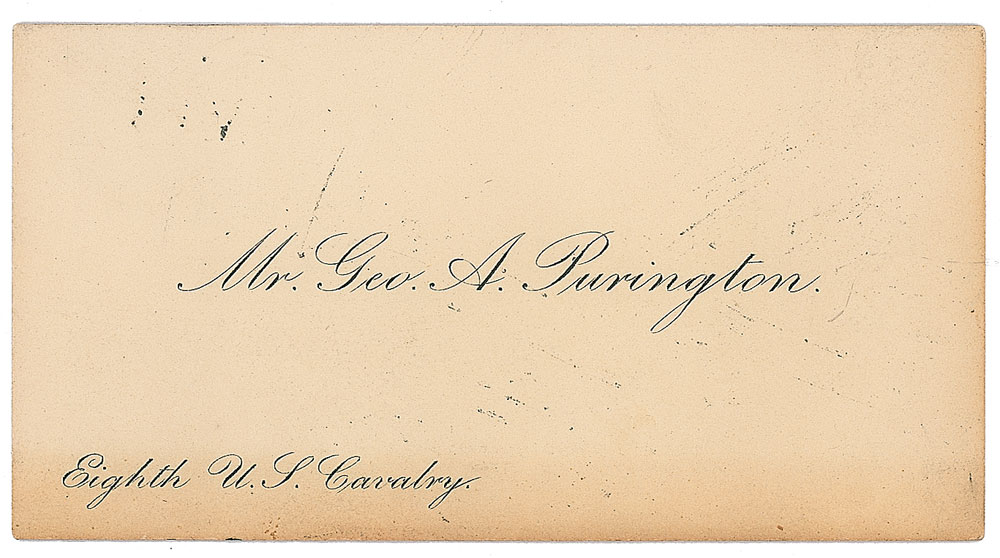 Mr. Geo. A. Purington.
Eighth U. S. Cavalry.